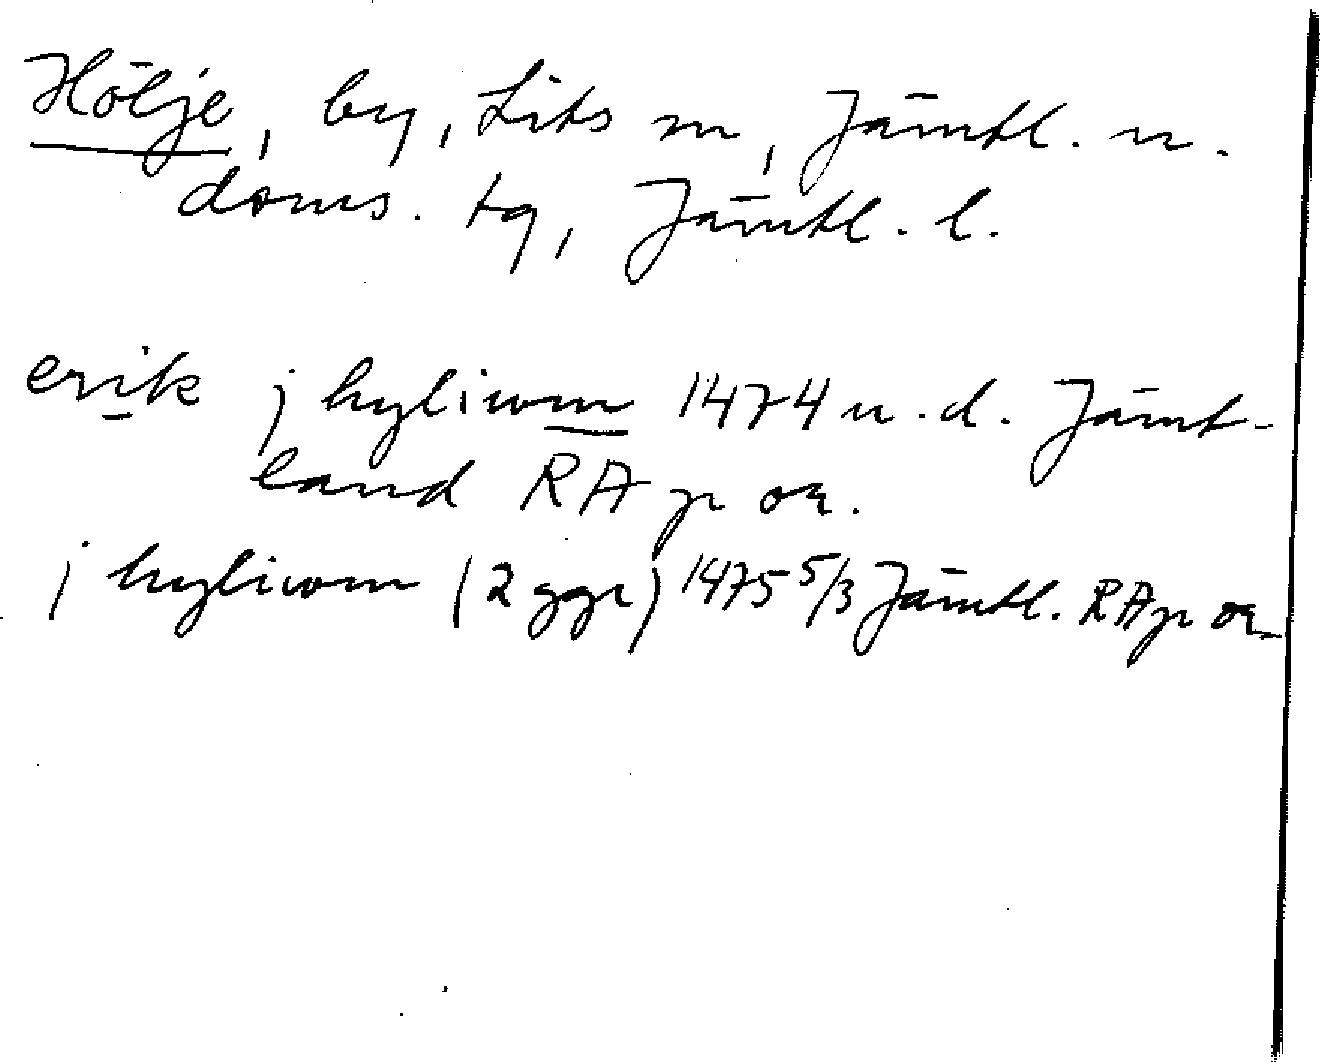 Hölje, by, Lits sn, Jämtl. n.
doms. tg, Jämtl. l.
erik j hyliwom 1474 u. d. Jämt-
land RAp or.
j hyliwom (2 ggr) 1475 5/3 Jämtl. RAp or.